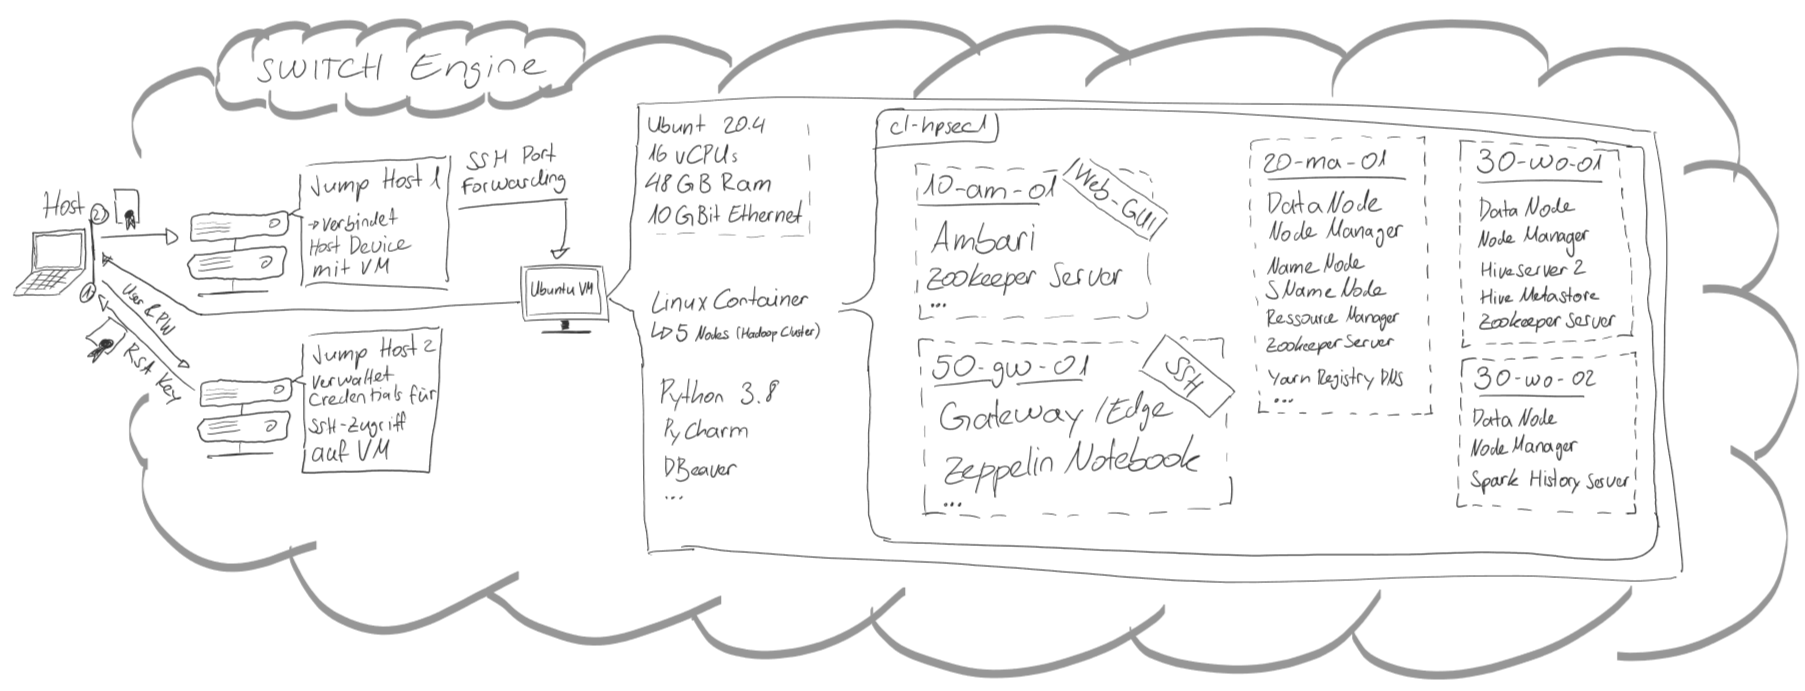 SWITCH Engine
Host
2
1
User & PW
RSA Key
Jump Host 1
→ Verbindet
Host Device
mit VM
SSH Port
Forwarding
Jump Host 2
Verwaltet
Credentials für
SSH-Zugriff
auf VM
Ubuntu VM
Ubunt 20.4
16 vCPUs
48 GB Ram
10 GBit Ethernet
Linux Container
↳ 5 Nodes (Hadoop Cluster)
Python 3.8
PyCharm
DBeaver
...
cl-hpsec1
10-am-01
Web-GUI
Ambari
Zookeeper Server
...
50-gw-01
SSH
Gateway /Edge
Zeppelin Notebook
...
20-ma-01
DataNode
Node Manager
Name Node
SName Node
Ressource Manager
Zookeeper Server
Yarn Registry DNS
...
30-wo-01
Data Node
Node Manager
Hiveserver 2
Hive Metastore
Zookeeper Server
30-wo-02
Data Node
Node Manager
Spark History Server